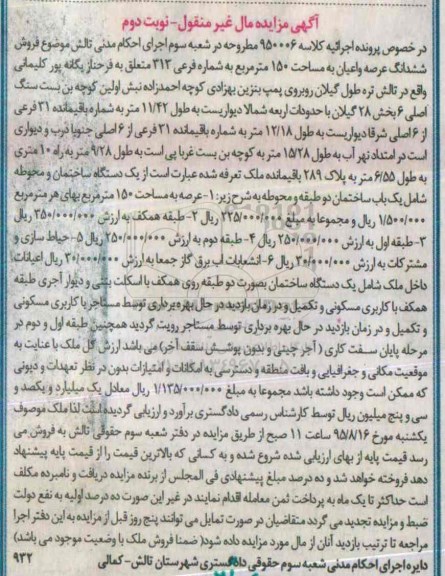 آگهی مزایده مال غیر منقول-نوبت دوم
در خصوص پرونده اجرائیه کلاسه ۹۵۰۰۰۶ مطروحه در شعبه سوم اجرای احکام مدنی تالش موضوع فروش
ششدانگ عرصه واعیان به مساحت ۱۵۰ مترمربع به شماره فرعی ۳۱۳ متعلق به فرحناز یگانه پور کلیمانی
واقع در تالش تره طول گیلان روبروی پمپ بنزین بهزادی کوچه احمدزاده نبش اولین کوچه بن بست سنگ
اصلی ۶ بخش ۲۸ گیلان با حدودات اربعه شمالا دیواریست به طول ۱۱/۴۲ متر به شماره باقیمانده ۳۱ فرعی
از ۶ اصلی شرقا دیواریست به طول ۱۲/۱۸ متر به شماره باقیمانده ۳۱ فرعی از ۶ اصلی جنوبا درب و دیواری
است در امتداد نهر آب به طول ۱۵/۲۸ متر به کوچه بن بست غربا پی است به طول ۹/۲۸ متر به راه ۱۰ متری
به طول ۶/۵۵ متر به پلاک ۲۸۹ باقیمانده ملک تعرفه شده عبارت است از یک دستگاه ساختمان و محوطه
شامل یک باب ساختمان دو طبقه و محوطه به شرح زیر: ۱-عرصه به مساحت ۱۵۰ مترمربع بهای هر مترمربع
۱/۵۰۰/۰۰۰ ریال و مجموعا به مبلغ ۲۲۵/۰۰۰/۰۰۰ ریال ۲- طبقه همکف به ارزش ۳۵۰/۰۰۰/۰۰۰ ریال
۳-طبقه اول به ارزش ۲۵۰/۰۰۰/۰۰۰ ریال ۴- طبقه دوم به ارزش ۲۵۰/۰۰۰/۰۰۰ ریال ۵- حیاط سازی و
مشترکات به ارزش ۳۰/۰۰۰/۰۰۰ ریال ۶- انشعابات آب برق گاز جمعا به ارزش ۳۰/۰۰۰/۰۰۰ ریال اعیانات
داخل ملک شامل یک دستگاه ساختمان بصورت دو طبقه روی همکف با اسکلت بتنی و دیوار آجری طبقه
همکف با کاربری مسکونی و تکمیل و در زمان بازدید در حال بهره برداری توسط مستاجر با کاربری مسکونی
و تکمیل و در زمان بازدید در حال بهره برداری توسط مستاجر رویت گردید همچنین طبقه اول و دوم در
مرحله پایان سفت کاری ( آجر چینی و بدون پوشش سقف آخر) می باشد ارزش کل ملک با عنایت به
موقعیت مکانی و جغرافیایی و بافت منطقه و دسترسی به امکانات و امتیازات بدون در نظر تعهدات و دیونی
که ممکن است وجود داشته باشد مجموعا به مبلغ ۱/۱۳۵/۰۰۰/۰۰۰ ریال معادل یک میلیارد و یکصد و
سی و پنج میلیون ریال توسط کارشناس رسمی دادگستری برآورد و ارزیابی گردیده است لذا ملک موصوف
یکشنبه مورخ ۹۵/۸/۱۶ ساعت ۱۱ صبح از طریق مزایده در دفتر شعبه سوم حقوقی تالش به فروش می
رسد قیمت پایه از بهای ارزیابی شده شروع شده و به کسانی که بالاترین قیمت را از قیمت پایه پیشنهاد
دهد فروخته خواهد شد و ده درصد مبلغ پیشنهادی فی المجلس از برنده مزایده دریافت و نامبرده مکلف
است حداکثر تا یک ماه به پرداخت ثمن معامله اقدام نمایند در غیر این صورت ده درصد اولیه به نفع دولت
ضبط و مزایده تجدید می گردد متقاضیان در صورت تمایل می توانند پنج روز قبل از مزایده به این دفتر اجرا
مراجعه تا ترتیب بازدید آنان از مال مورد مزایده داده شود( ضمنا فروش ملک با وضعیت موجود می باشد)
دایره اجرای احکام مدنی شعبه سوم حقوقی دادگستری شهرستان تالش-کمالی ۹۳۲